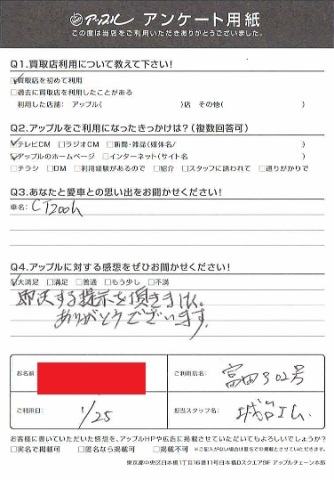 アップル アンケート用紙
この度は当店をご利用いただきありがとうございました。
Q1.買取店利用について教えて下さい!
□買取店を初めて利用
□過去に買取店を利用したことがある
利用した店舗： アップル( )店 その他( )
Q2.アップルをご利用になったきっかけは？(複数回答可)
□テレビCM □ラジオCM □新聞・雑誌(媒体名/ )
□アップルのホームページ □インターネット(サイト名 )
□チラシ □DM □利用経験があるので □紹介 □スタッフに誘われて □通りがかりで
Q3.あなたと愛車との思い出をお聞かせください!
車名： CT200h
Q4.アップルに対する感想をぜひお聞かせください!
□大満足 □満足 □普通 □もう少し □不満
即決する提示を頂きました。
ありがとうございます。
お名前
ご利用店名 富田302号
ご利用日 1/25
担当スタッフ名
お客様に書いていただいた感想を、アップルHPや広告に掲載させていただいてもよろしいでしょうか?
□実名で掲載可 □匿名なら掲載可 □掲載不可
東京都中央区日本橋1丁目16番11号日本橋Dスクエア8F アップルチェーン本部